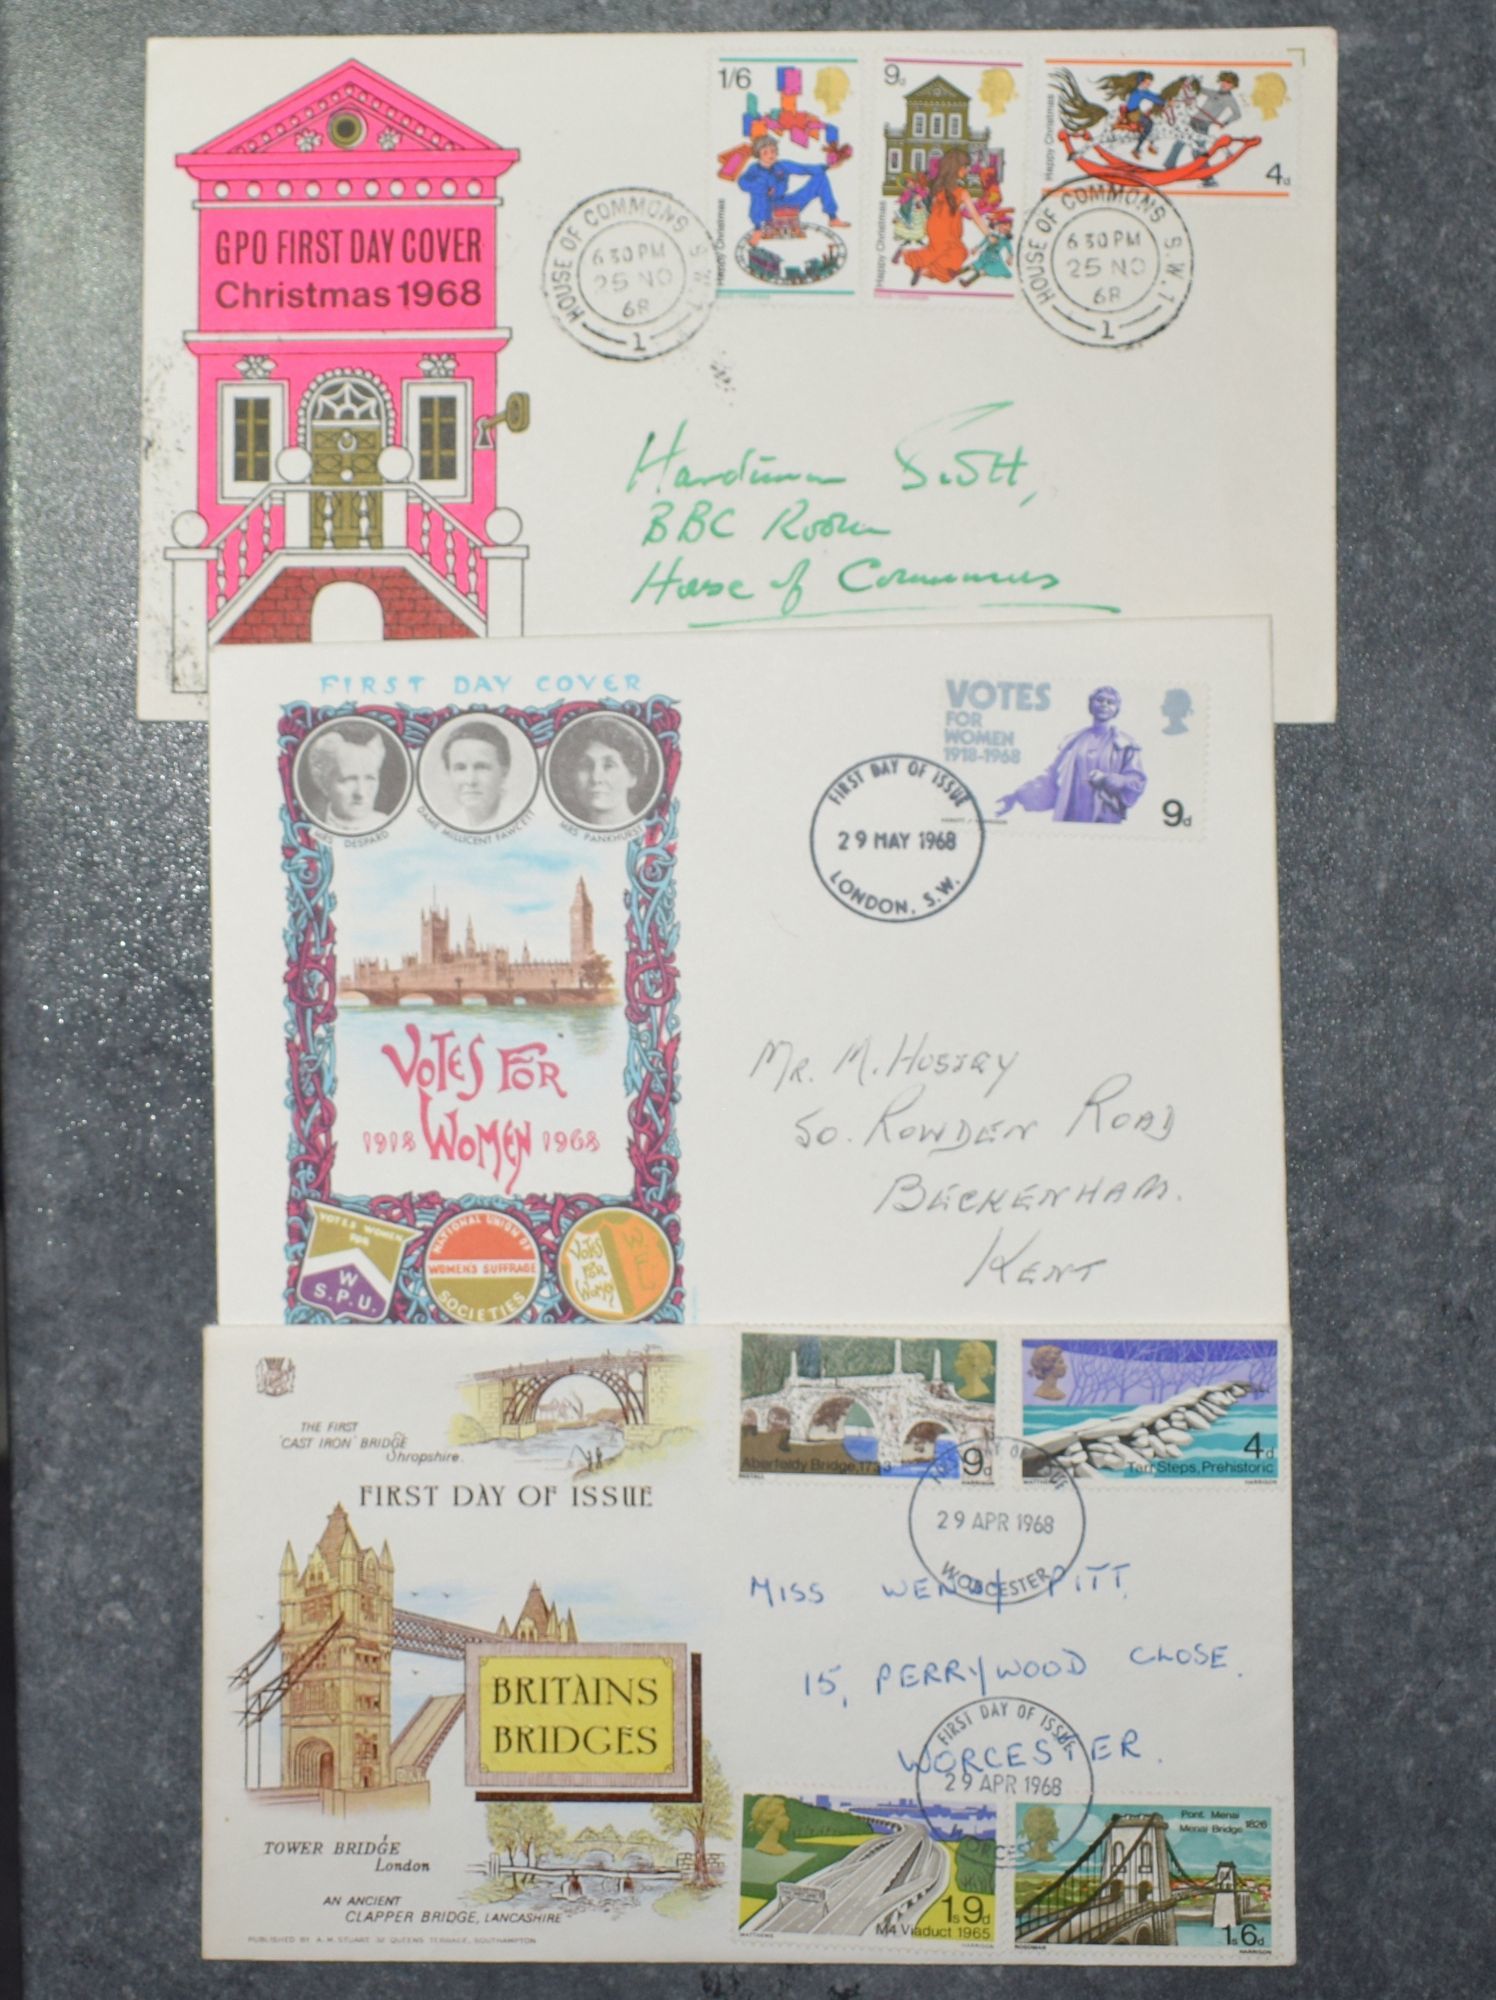 GPO FIRST DAY COVER
Christmas 1968
1/6
Happy Christmas
9d
Happy Christmas
Happy Christmas
4d
HOUSE OF COMMONS S.W.1.
6 30 PM
25 NO
68
1
HOUSE OF COMMONS S.W.1.
6 30 PM
25 NO
68
1
Hardiman Scott,
BBC Room
House of Commons
FIRST DAY COVER
MRS DESPARD
DAME MILLICENT FAWCETT
MRS PANKHURST
VOTES FOR
1918 WOMEN 1968
VOTES FOR WOMEN
W
S.P.U.
NATIONAL UNION OF
WOMEN'S SUFFRAGE
SOCIETIES
VOTES
FOR
WOMEN
VOTES
FOR
WOMEN
1918-1968
9d
FIRST DAY OF ISSUE
29 MAY 1968
LONDON, S.W.
MR. M. HUSSEY
50. ROWDEN ROAD
BECKENHAM.
KENT
THE FIRST
'CAST IRON' BRIDGE
Shropshire.
FIRST DAY OF ISSUE
BRITAINS
BRIDGES
TOWER BRIDGE
London
AN ANCIENT
CLAPPER BRIDGE, LANCASHIRE
PUBLISHED BY A. M. STUART 32 QUEENS TERRACE, SOUTHAMPTON
Aberfeldy Bridge, 1733
9d
HARRISON
4d
Tarr Steps, Prehistoric
MATTHEWS
HARRISON
29 APR 1968
WORCESTER
MISS WENDY PITT.
15, PERRYWOOD CLOSE.
WORCESTER.
FIRST DAY OF ISSUE
29 APR 1968
1s 9d
M4 Viaduct 1965
MATTHEWS
HARRISON
Pont Menai
Menai Bridge 1826
1s 6d
ROSOMAN
HARRISON